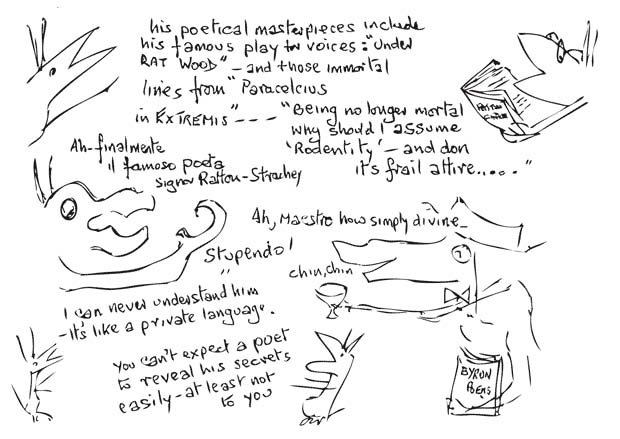 his poetical masterpieces include
his famous play for voices: "Under
RAT WOOD" - and those immortal
lines from "Paracelcius
in EXTREMIS" - - - "Being no longer mortal
why should I assume
'Rodentity' - and don
it's frail attire....."
Ah - finalmente
il famoso poeta
signor Ratton-Strachey
Stupendo!
Ah, Maestro how simply divine -
chin, chin
I can never understand him
- It's like a private language.
You can't expect a poet
to reveal his secrets
easily - at least not
to you
BYRON
POEMS